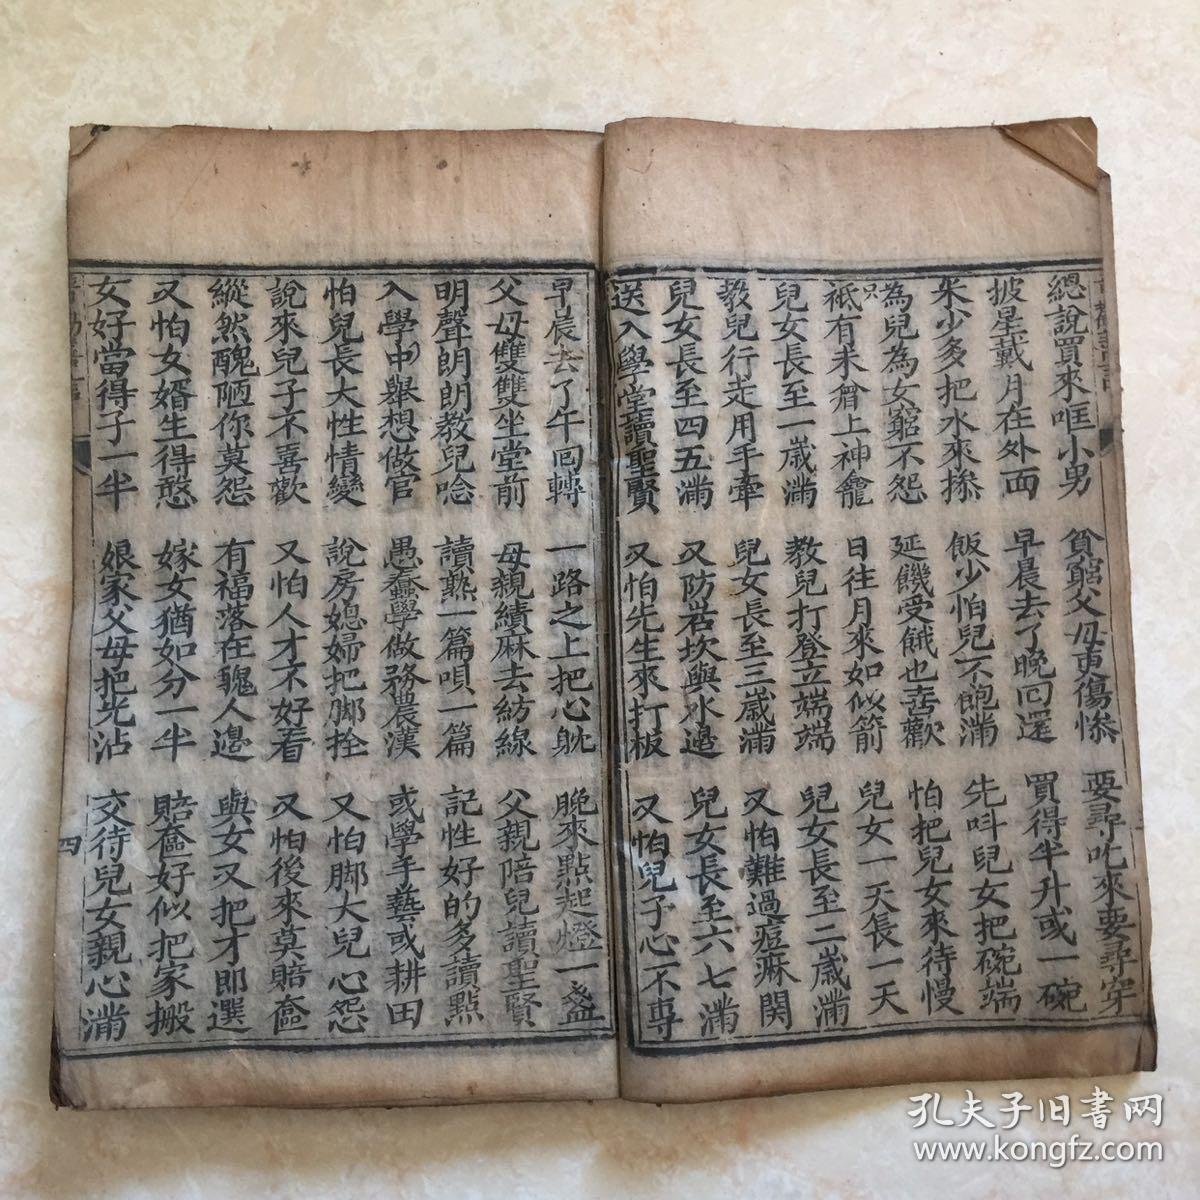 總說買來哐小男 貧窮父母更傷慘 要尋吃來要尋穿
披星戴月在外面 早晨去了晚回還 買得半升或一碗
米少多把水來摻 飯少怕兒不飽滿 先呌兒女把碗端
為兒為女窮不怨 延饑受餓也喜歡 怕把兒女來待慢
祗有米脀上神龕 日往月來如似箭 兒女一天長一天
只
兒女長至一歲滿 教兒打登立端端 兒女長至二歲滿
教兒行走用手牽 兒女長至三歲滿 又怕難過痘麻關
兒女長至四五滿 又防岩坎與水邊 兒女長至六七滿
送入學堂讀聖賢 又怕先生來打板 又怕兒子心不專
早晨去了午囘轉 一路之上把心躭 晚來點起燈一盞
父母雙雙坐堂前 母親績麻去紡線 父親陪兒讀聖賢
明聲朗朗教兒唸 讀熟一篇唄一篇 記性好的多讀點
入學中舉想做官 愚蠢學做務農漢 或學手藝或耕田
怕兒長大性情變 說房媳婦把脚拴 又怕脚大兒心怨
說來兒子不喜歡 又怕人才不好看 又怕後來莫賠奩
縱然醜陋你莫怨 有福落在醜人邊 與女又把才郎選
又怕女婿生得憨 嫁女猶如分一半 賠奩好似把家搬
女好當得子一半 娘家父母把光沾 交待兒女親心滿
四
孔夫子旧书网
www.kongfz.com